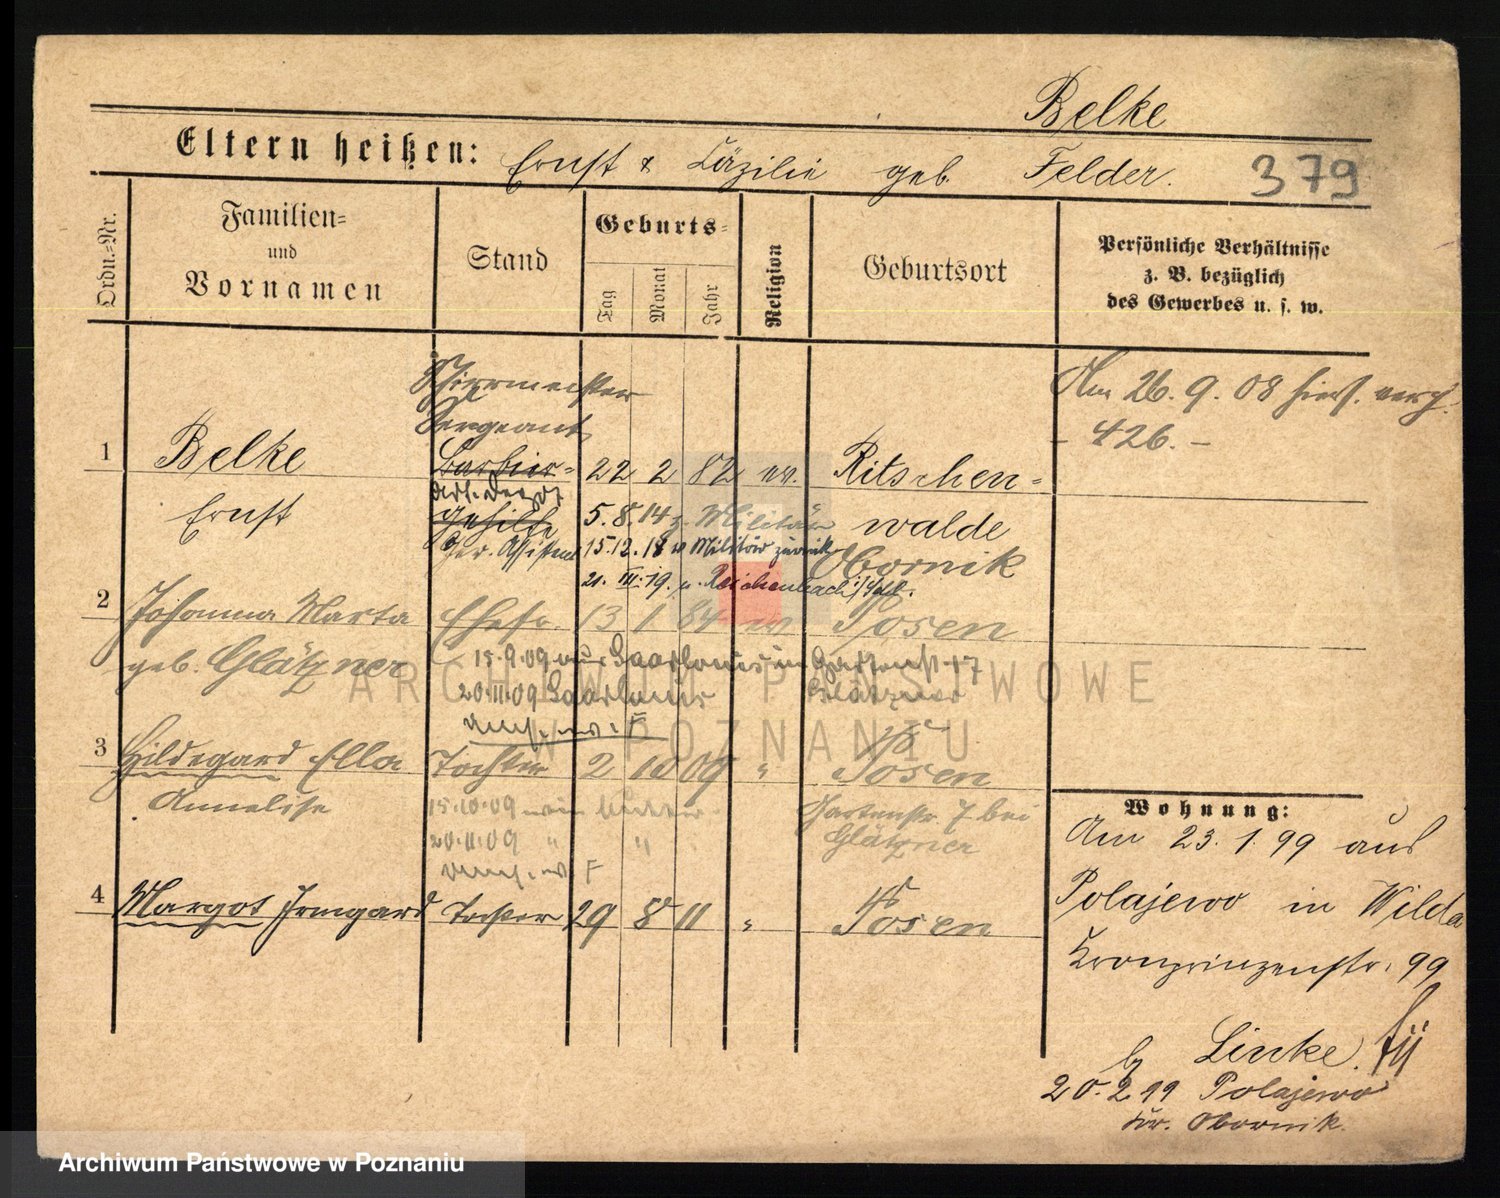 Belke
Eltern heißen: Ernst & Cäzilie geb. Felder.
379
Ordn.=Nr.
Familien=
und
Vornamen
Stand
Geburts=
Tag
Monat
Jahr
Religion
Geburtsort
Persönliche Verhältnisse
z. B. bezüglich
des Gewerbes u. s. w.
Schirrmeister
Sergeant
Am 26. 9. 08 hies. verh.
- 426. -
1 Belke Barbier= 22 2 82 ev. Ritschen=
Ernst gehilfe 5. 8. 14 z. Militär walde
Ger. Assistent 15.12.18 v Militär zurück Obornik
21. III. 19. n. Reichenbach i/Schl.
2 Johanna Marta Ehefr. 13 1 84 ev Posen
geb. Glätzner 15.9.09 aus Saarlouis in Gartenstr. 17
20.11.09 Saarlouis Glätzner
F
3 Hildegard Ella Tochter 2 10 09 " Posen
Annelise 15.10.09 Gartenstr 7 bei
20.11.09 " " Glätzner
F
4 Margot Irmgard Tochter 29 8 11 " Posen
Wohnung:
Am 23. 1. 99 aus
Polajewo in Wilda
Kronprinzenstr. 99
b Linke.
20. 2 99 Polajewo
Kr. Obornik.
ARCHIWUM PAŃSTWOWE
W POZNANIU
Archiwum Państwowe w Poznaniu